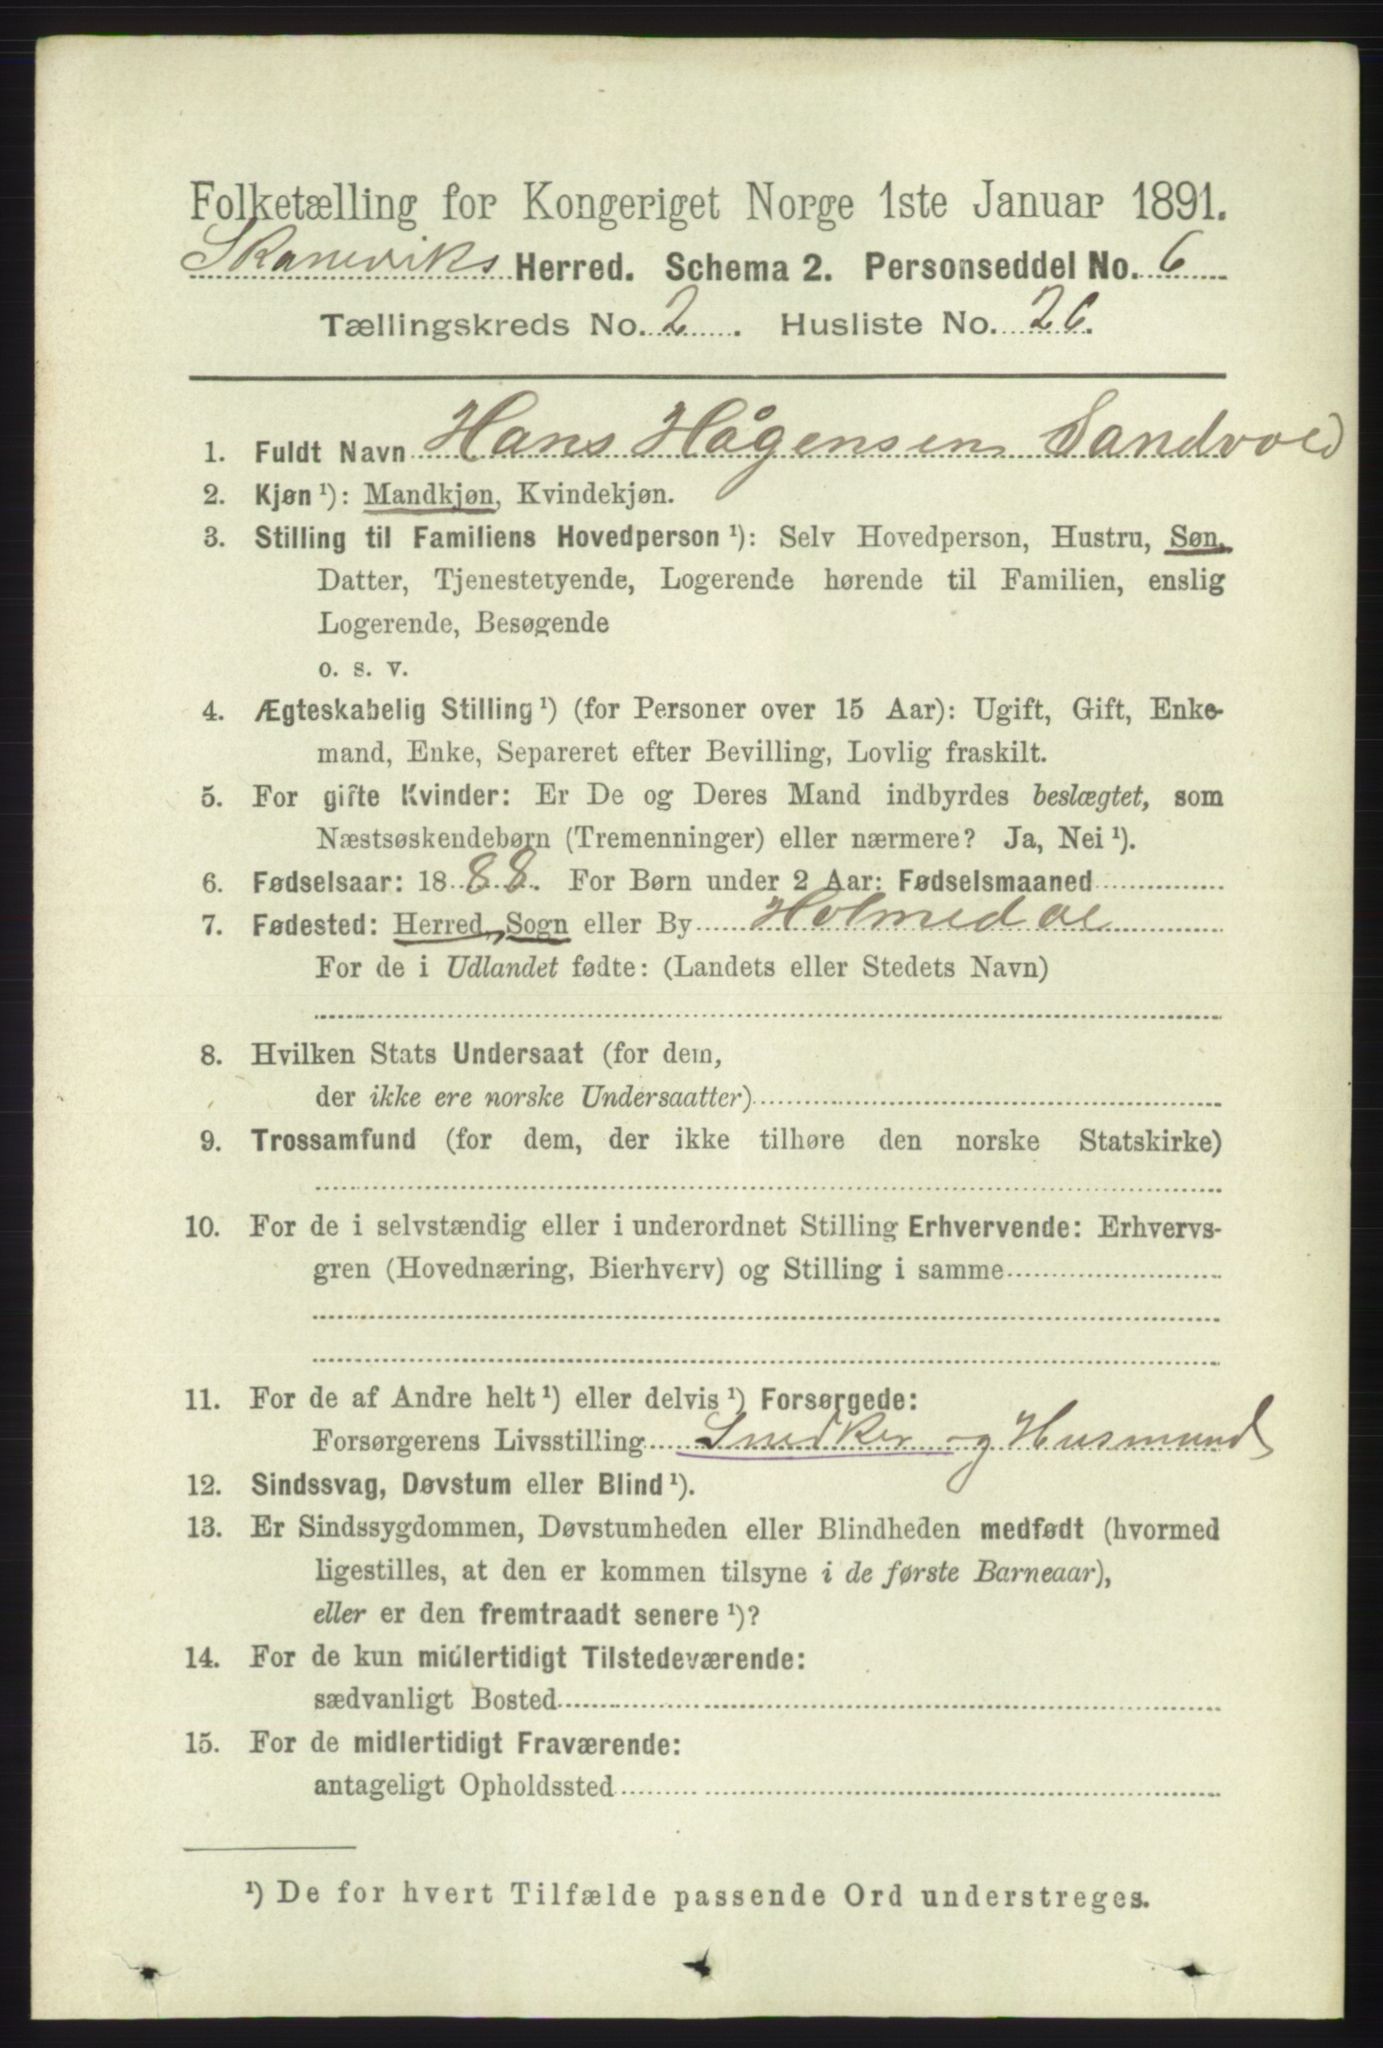 Folketælling for Kongeriget Norge 1ste Januar 1891.
Skaneviks Herred. Schema 2. Personseddel No. 6
Tællingskreds No. 2. Husliste No. 26.
1. Fuldt Navn Hans Hågensen Sandvold
2. Kjøn ¹): Mandkjøn, Kvindekjøn.
3. Stilling til Familiens Hovedperson ¹): Selv Hovedperson, Hustru, Søn,
Datter, Tjenestetyende, Logerende hørende til Familien, enslig
Logerende, Besøgende
o. s. v.
4. Ægteskabelig Stilling ¹) (for Personer over 15 Aar): Ugift, Gift, Enke-
mand, Enke, Separeret efter Bevilling, Lovlig fraskilt.
5. For gifte Kvinder: Er De og Deres Mand indbyrdes beslægtet, som
Næstsøskendebørn (Tremenninger) eller nærmere? Ja, Nei ¹).
6. Fødselsaar: 1888. For Børn under 2 Aar: Fødselsmaaned
7. Fødested: Herred, Sogn eller By Holmedal
For de i Udlandet fødte: (Landets eller Stedets Navn)
8. Hvilken Stats Undersaat (for dem,
der ikke ere norske Undersaatter)
9. Trossamfund (for dem, der ikke tilhøre den norske Statskirke)
10. For de i selvstændig eller i underordnet Stilling Erhvervende: Erhvervs-
gren (Hovednæring, Bierhverv) og Stilling i samme
11. For de af Andre helt ¹) eller delvis ¹) Forsørgede:
Forsørgerens Livsstilling Snedker og Husmand
12. Sindssvag, Døvstum eller Blind ¹).
13. Er Sindssygdommen, Døvstumheden eller Blindheden medfødt (hvormed
ligestilles, at den er kommen tilsyne i de første Barneaar),
eller er den fremtraadt senere ¹)?
14. For de kun midlertidigt Tilstedeværende:
sædvanligt Bosted
15. For de midlertidigt Fraværende:
antageligt Opholdssted
¹) De for hvert Tilfælde passende Ord understreges.